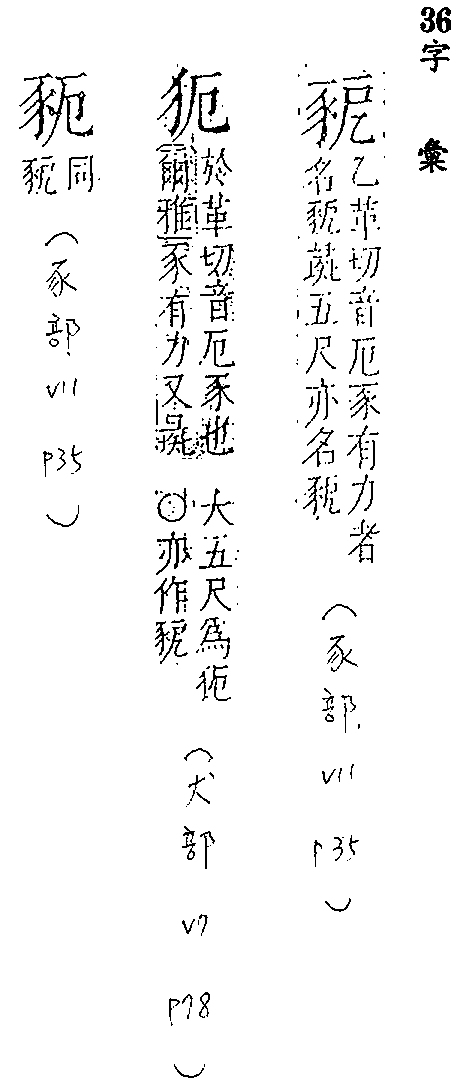 36字 彙
乙革切音厄豕有力者
名五尺亦名（豕部 V11 P35）
於革切音厄豕也 大五尺爲
爾雅豕有力又 ○亦作（犬部 V7 P78）
豟
同
（豕部 V11 P35）